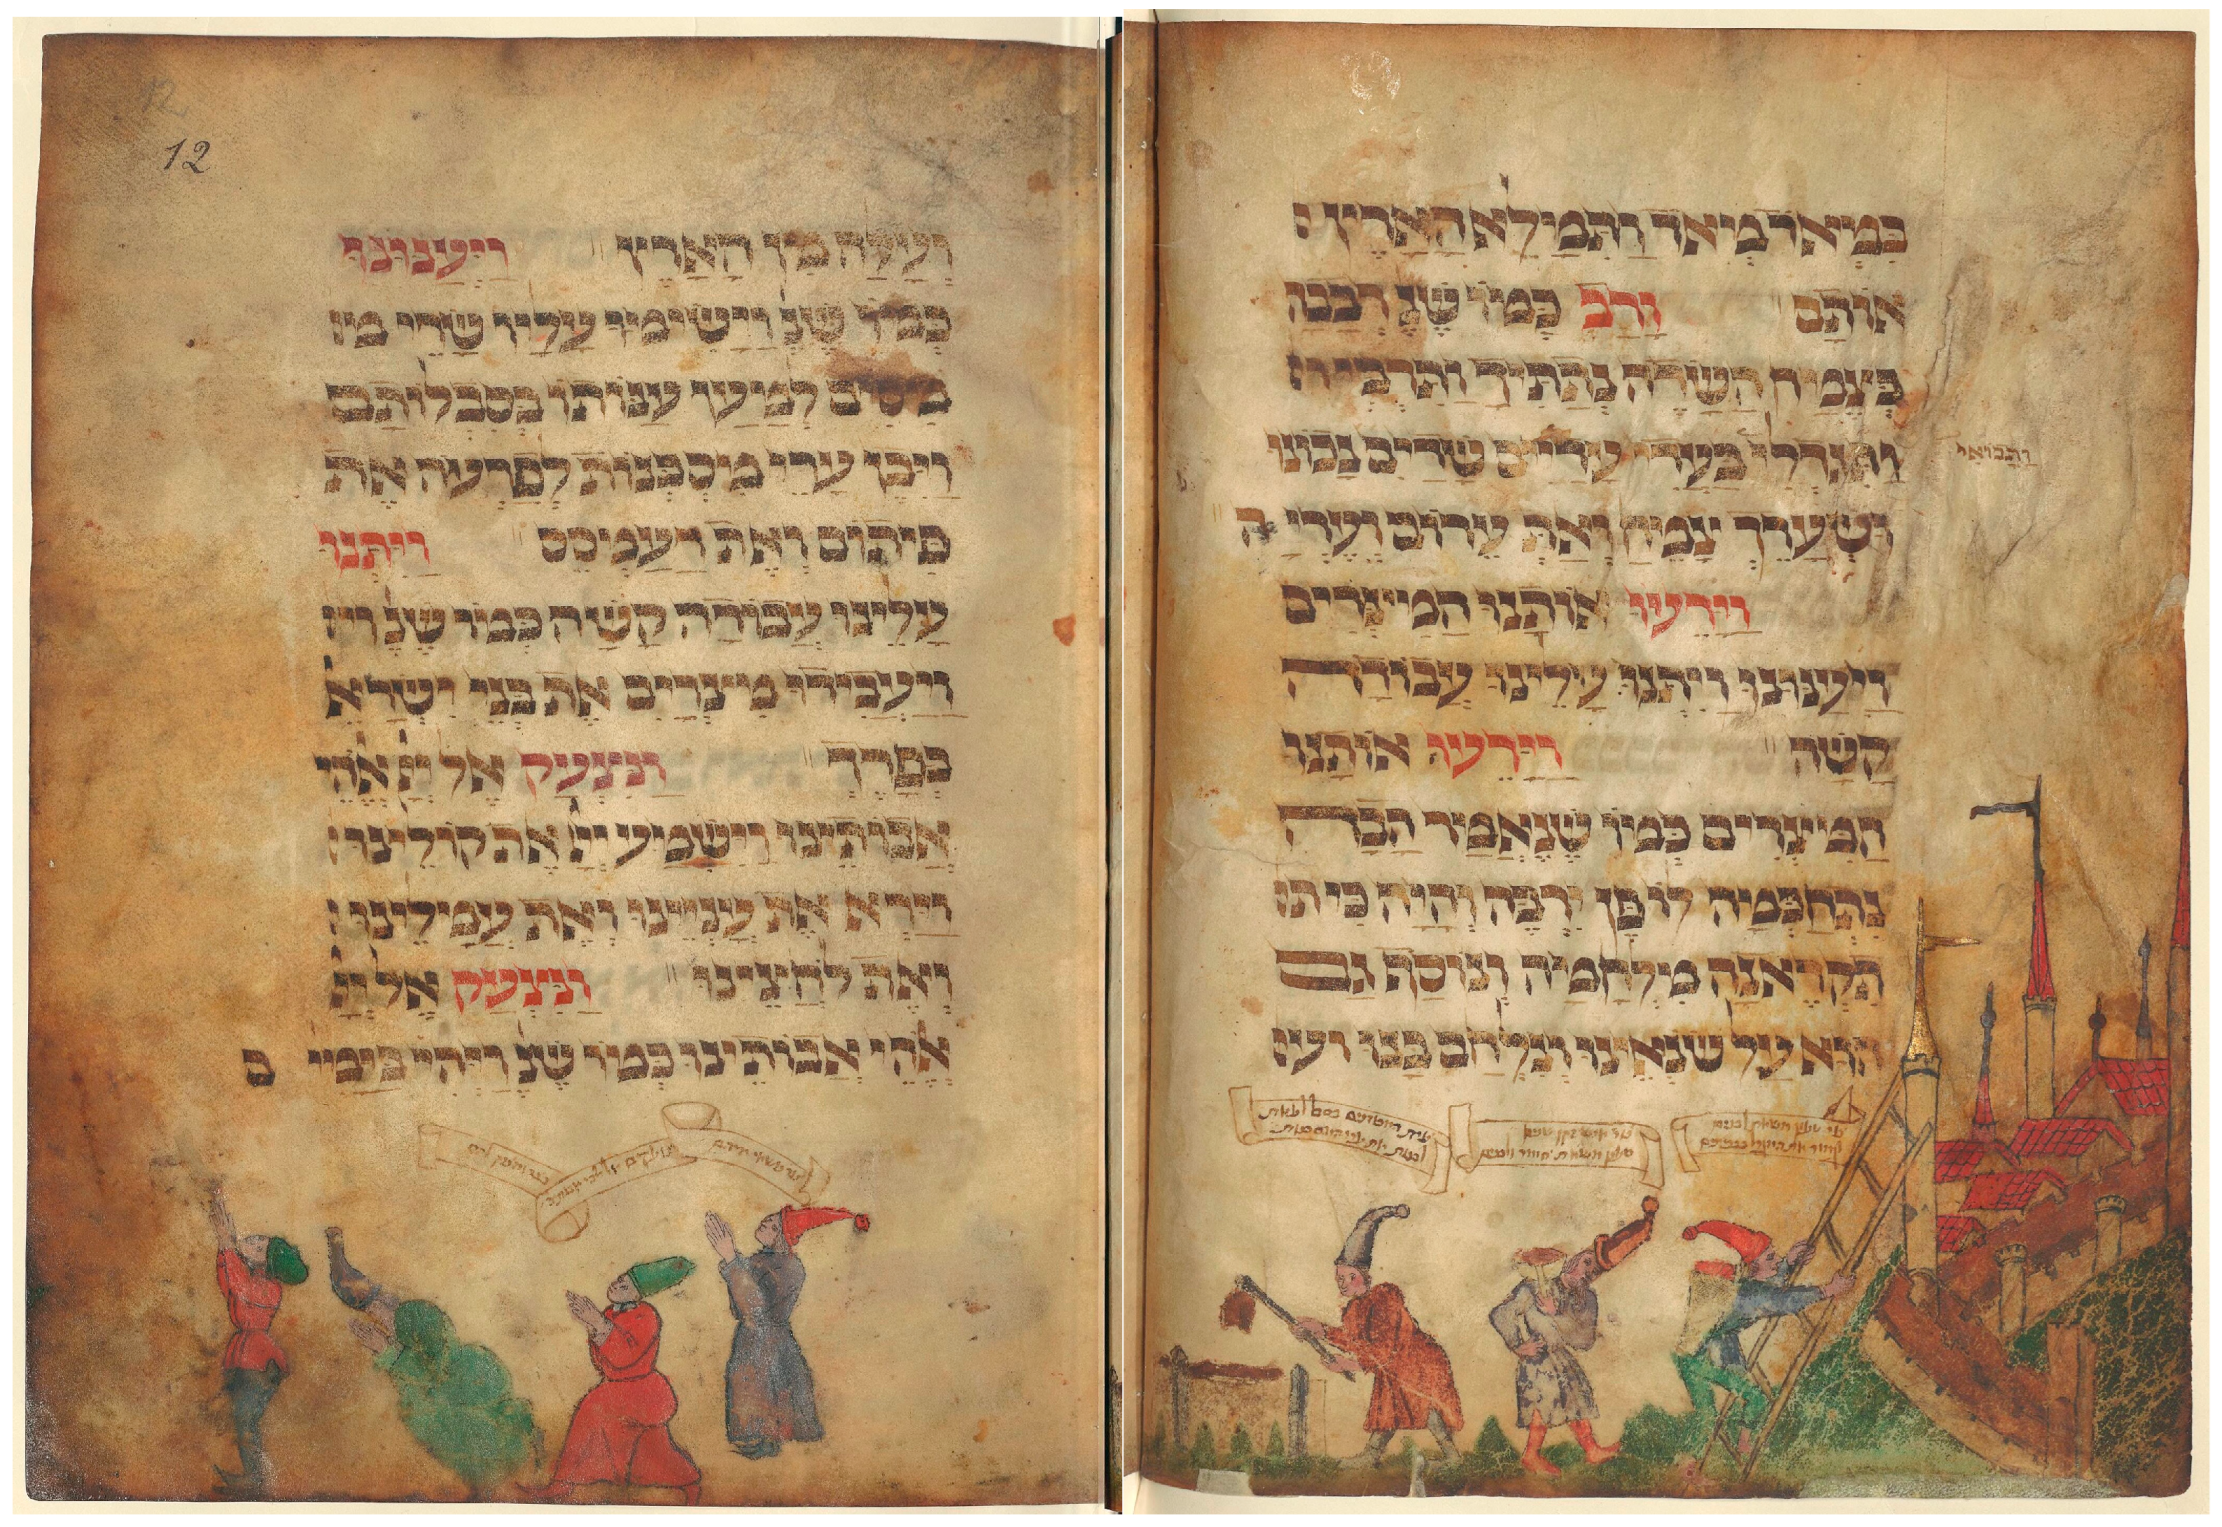 במאד מאד ותמלא הארץ
אותם ורב כמו שנ׳ רבבה
כצמח השדה נתתיך ותרבי
ותגדלי בעדי עדיים שדיים נכונו ותבואי
ושערך צמח ואת ערום ועריה
וירעו אותנו המצרים
ויענונו ויתנו עלינו עבודה
קשה וירעו אותנו
המצרים כמו שנאמר הבה
נתחכמה לו פן ירבה והיה כי ת
תקראנה מלחמה ונוסף גם
הוא על שנאינו ונלחם בנו ועל
12
ועלה מן הארץ ויענונו
כמו שנ׳ וישימו עליו שרי מ
מסים למען ענותו בסבלותם
ויבן ערי מסכנות לפרעה את
פיתום ואת רעמסס ויתנו
עלינו עבודה קשה כמו שנ׳ וי
ויעבידו מצרים את בני ישראל
בפרך ונצעק אל יי אלהי
אבותינו וישמע יי את קולינו
וירא את ענינו ואת עמלינו
ואת לחצינו ונצעק אל יי
אלהי אבותינו כמו שנ׳ ויהי בימי ם